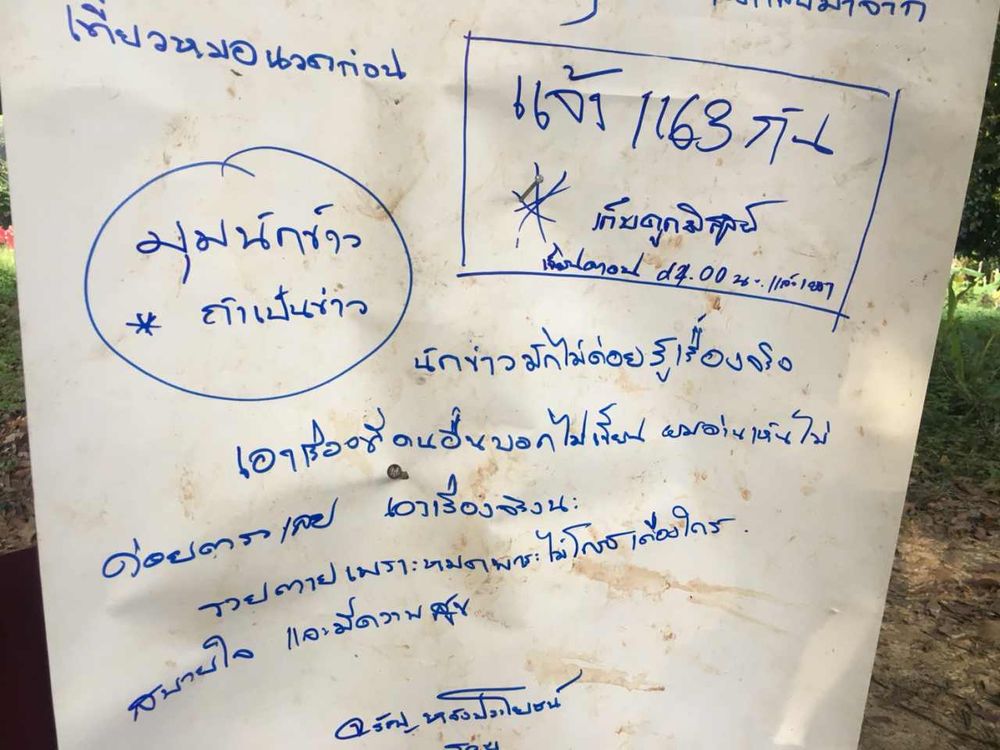 เที่ยวหมอนวดก่อน
แจ้ง 1163 กัน
* เก็บลูกพิสูจน์
เขียนตอน 04.00 น. และเขา
มุมนักข่าว
* ถ้าเป็นข่าว
นักข่าวมักไม่ค่อยรู้เรื่องจริง
เอาเรื่องที่คนอื่นบอกไปเขียน ผมอ่านเห็นไม่
ค่อยตรงเลย เอาเรื่องจริงนะ
เพราะหมดพระไม่โกรธเคืองใคร.
สบายใจ และมีความสุข
หวังประโยชน์